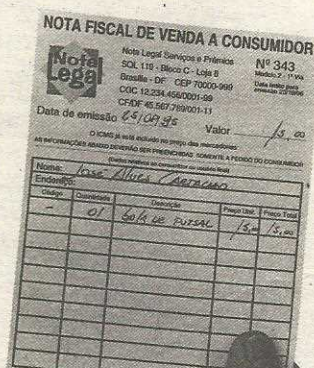 NOTA FISCAL DE VENDA A CONSUMIDOR
Nota Legal
Nota Legal Serviços e Prêmios
SQL 119 - Bloco C - Loja 8
Brasília - DF CEP 70000-999
CGC 12.234.456/0001-99
CF/DF 45.567.789/001-11
Nº 343
Modelo 2 - 1ª Via
Data de emissão
Valor 15,00
O ICMS já está incluído no preço das mercadorias
AS INFORMAÇÕES ABAIXO DEVERÃO SER PREENCHIDAS SOMENTE A PEDIDO DO CONSUMIDOR
Nome: José Alves
Endereço:
Código Quantidade Descrição Preço Unit. Preço Total
- 01 bola de futsal 15,00 15,00